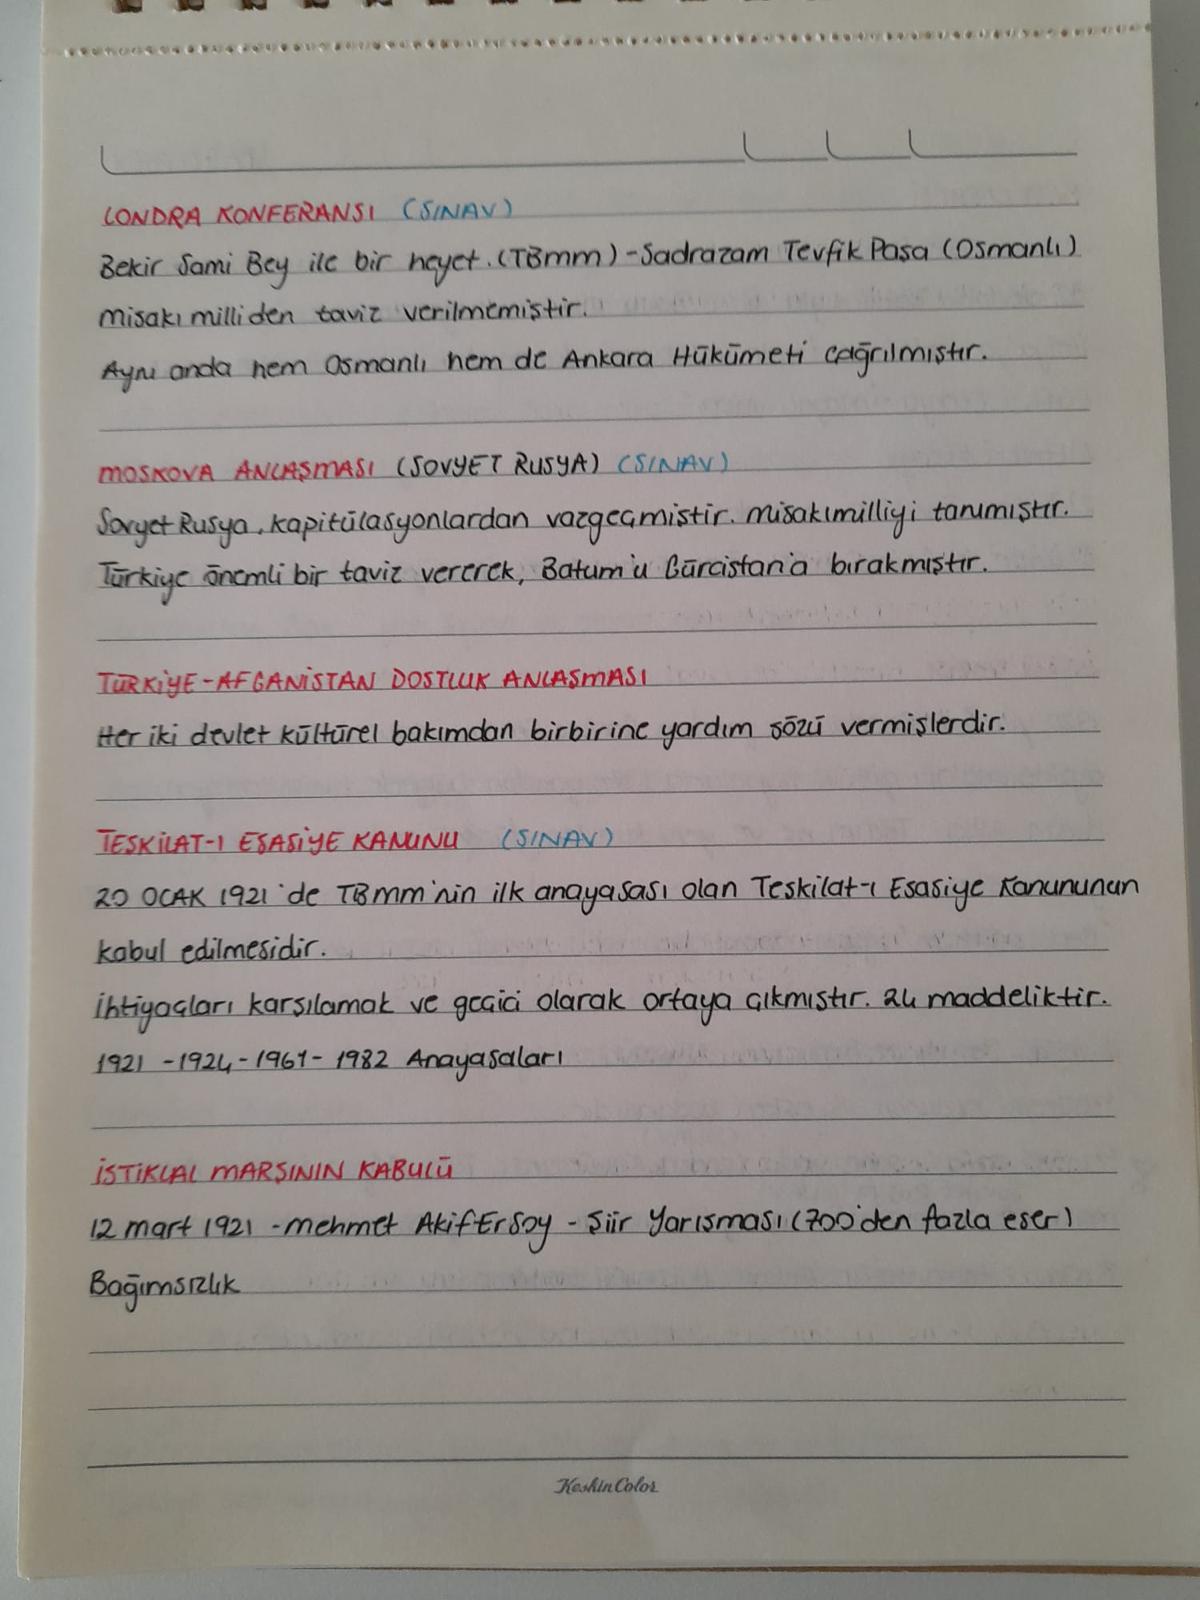 LONDRA KONFERANSI (SINAV)
Bekir Sami Bey ile bir heyet. (TBmm) - Sadrazam Tevfik Paşa (Osmanlı)
misakı milliden taviz verilmemiştir.
Aynı anda hem Osmanlı hem de Ankara Hükümeti çağrılmıştır.
MOSKOVA ANLAŞMASI (SOVYET RUSYA) (SINAV)
Sovyet Rusya, kapitülasyonlardan vazgeçmiştir. misakımilliyi tanımıştır.
Türkiye önemli bir taviz vererek, Batum'u Gürcistan'a bırakmıştır.
TÜRKİYE-AFGANİSTAN DOSTLUK ANLAŞMASI
Her iki devlet kültürel bakımdan birbirine yardım sözü vermişlerdir.
TEŞKİLAT-I ESASİYE KANUNU (SINAV)
20 OCAK 1921'de TBmm'nin ilk anayasası olan Teşkilat-ı Esasiye Kanununun
kabul edilmesidir.
ihtiyaçları karşılamak ve geçici olarak ortaya çıkmıştır. 24 maddeliktir.
1921 - 1924 - 1961 - 1982 Anayasaları
İSTİKLAL MARŞININ KABULÜ
12 mart 1921 - mehmet Akif Ersoy - Şiir Yarışması (700'den fazla eser)
Bağımsızlık
KeskinColor